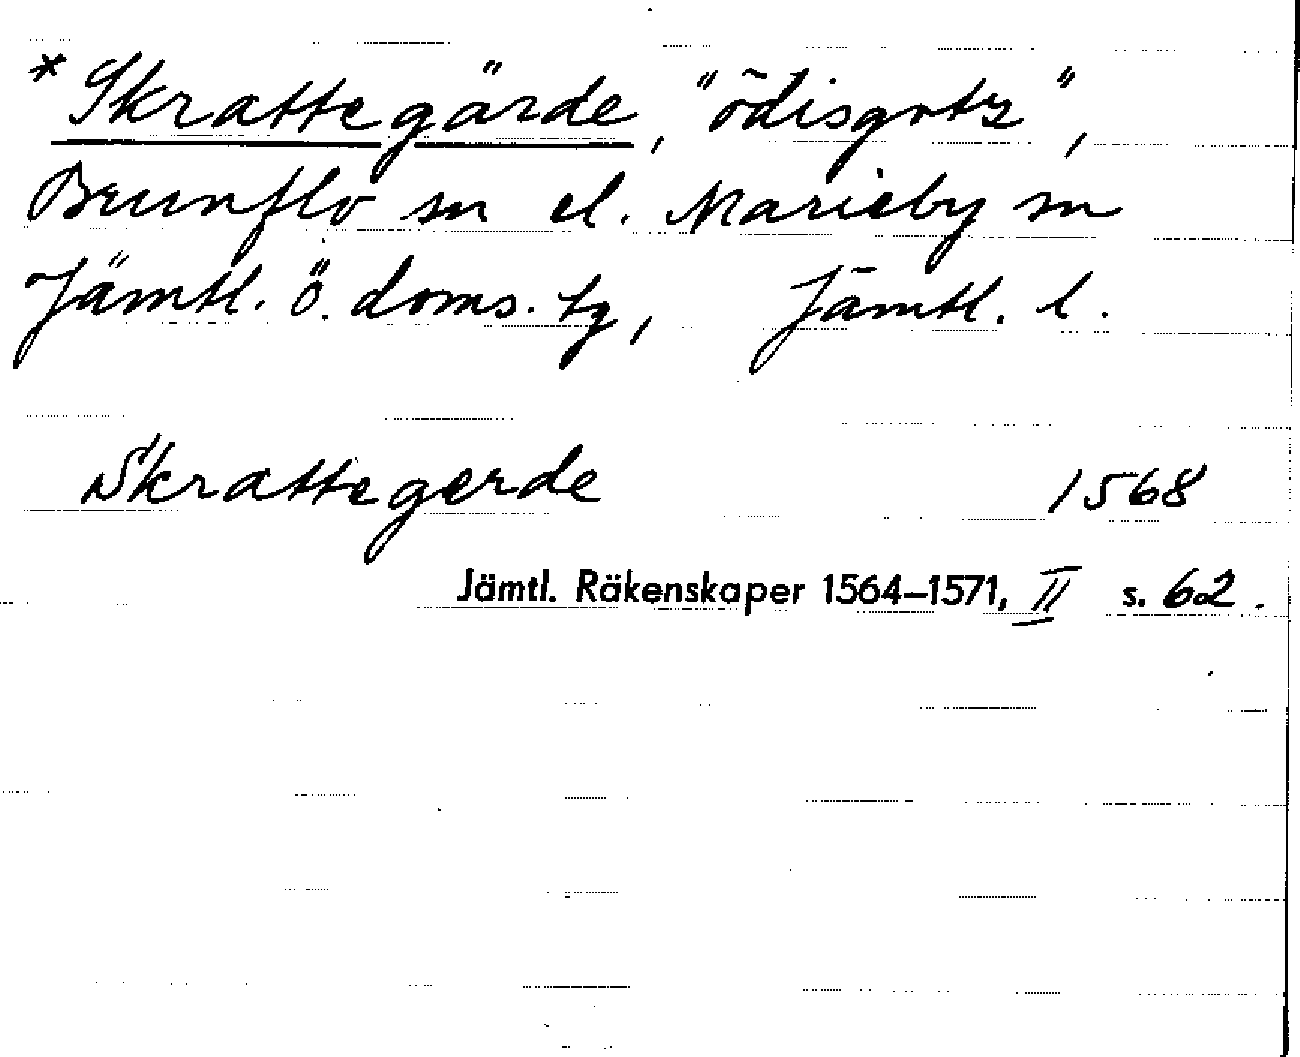 * Skrattegärde, "ödisgotz",
Brunflo sn el. Marieby sn
Jämtl. ö. doms. tg, Jämtl. l.
Skrattegerde 1568
Jämtl. Räkenskaper 1564–1571, II s. 62.